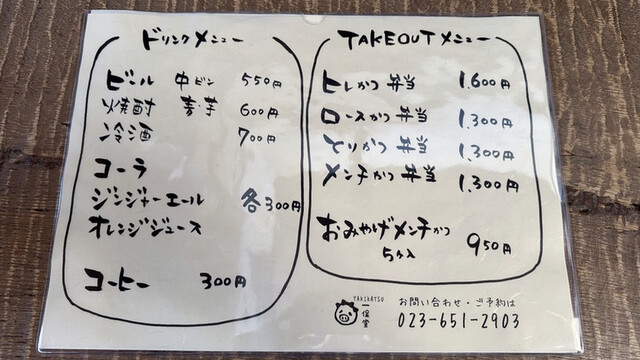 ドリンクメニュー
ビール 中ビン 550円
焼酎 麦芋 600円
冷酒 700円
コーラ
ジンジャーエール 各300円
オレンジジュース
コーヒー 300円
TAKEOUTメニュー
ヒレかつ弁当 1,600円
ロースかつ弁当 1,300円
とりかつ弁当 1,300円
メンチかつ弁当 1,300円
おみやげメンチかつ
5ヶ入 950円
TAKIKATSU
一保堂
お問い合わせ・ご予約は
023-651-2903